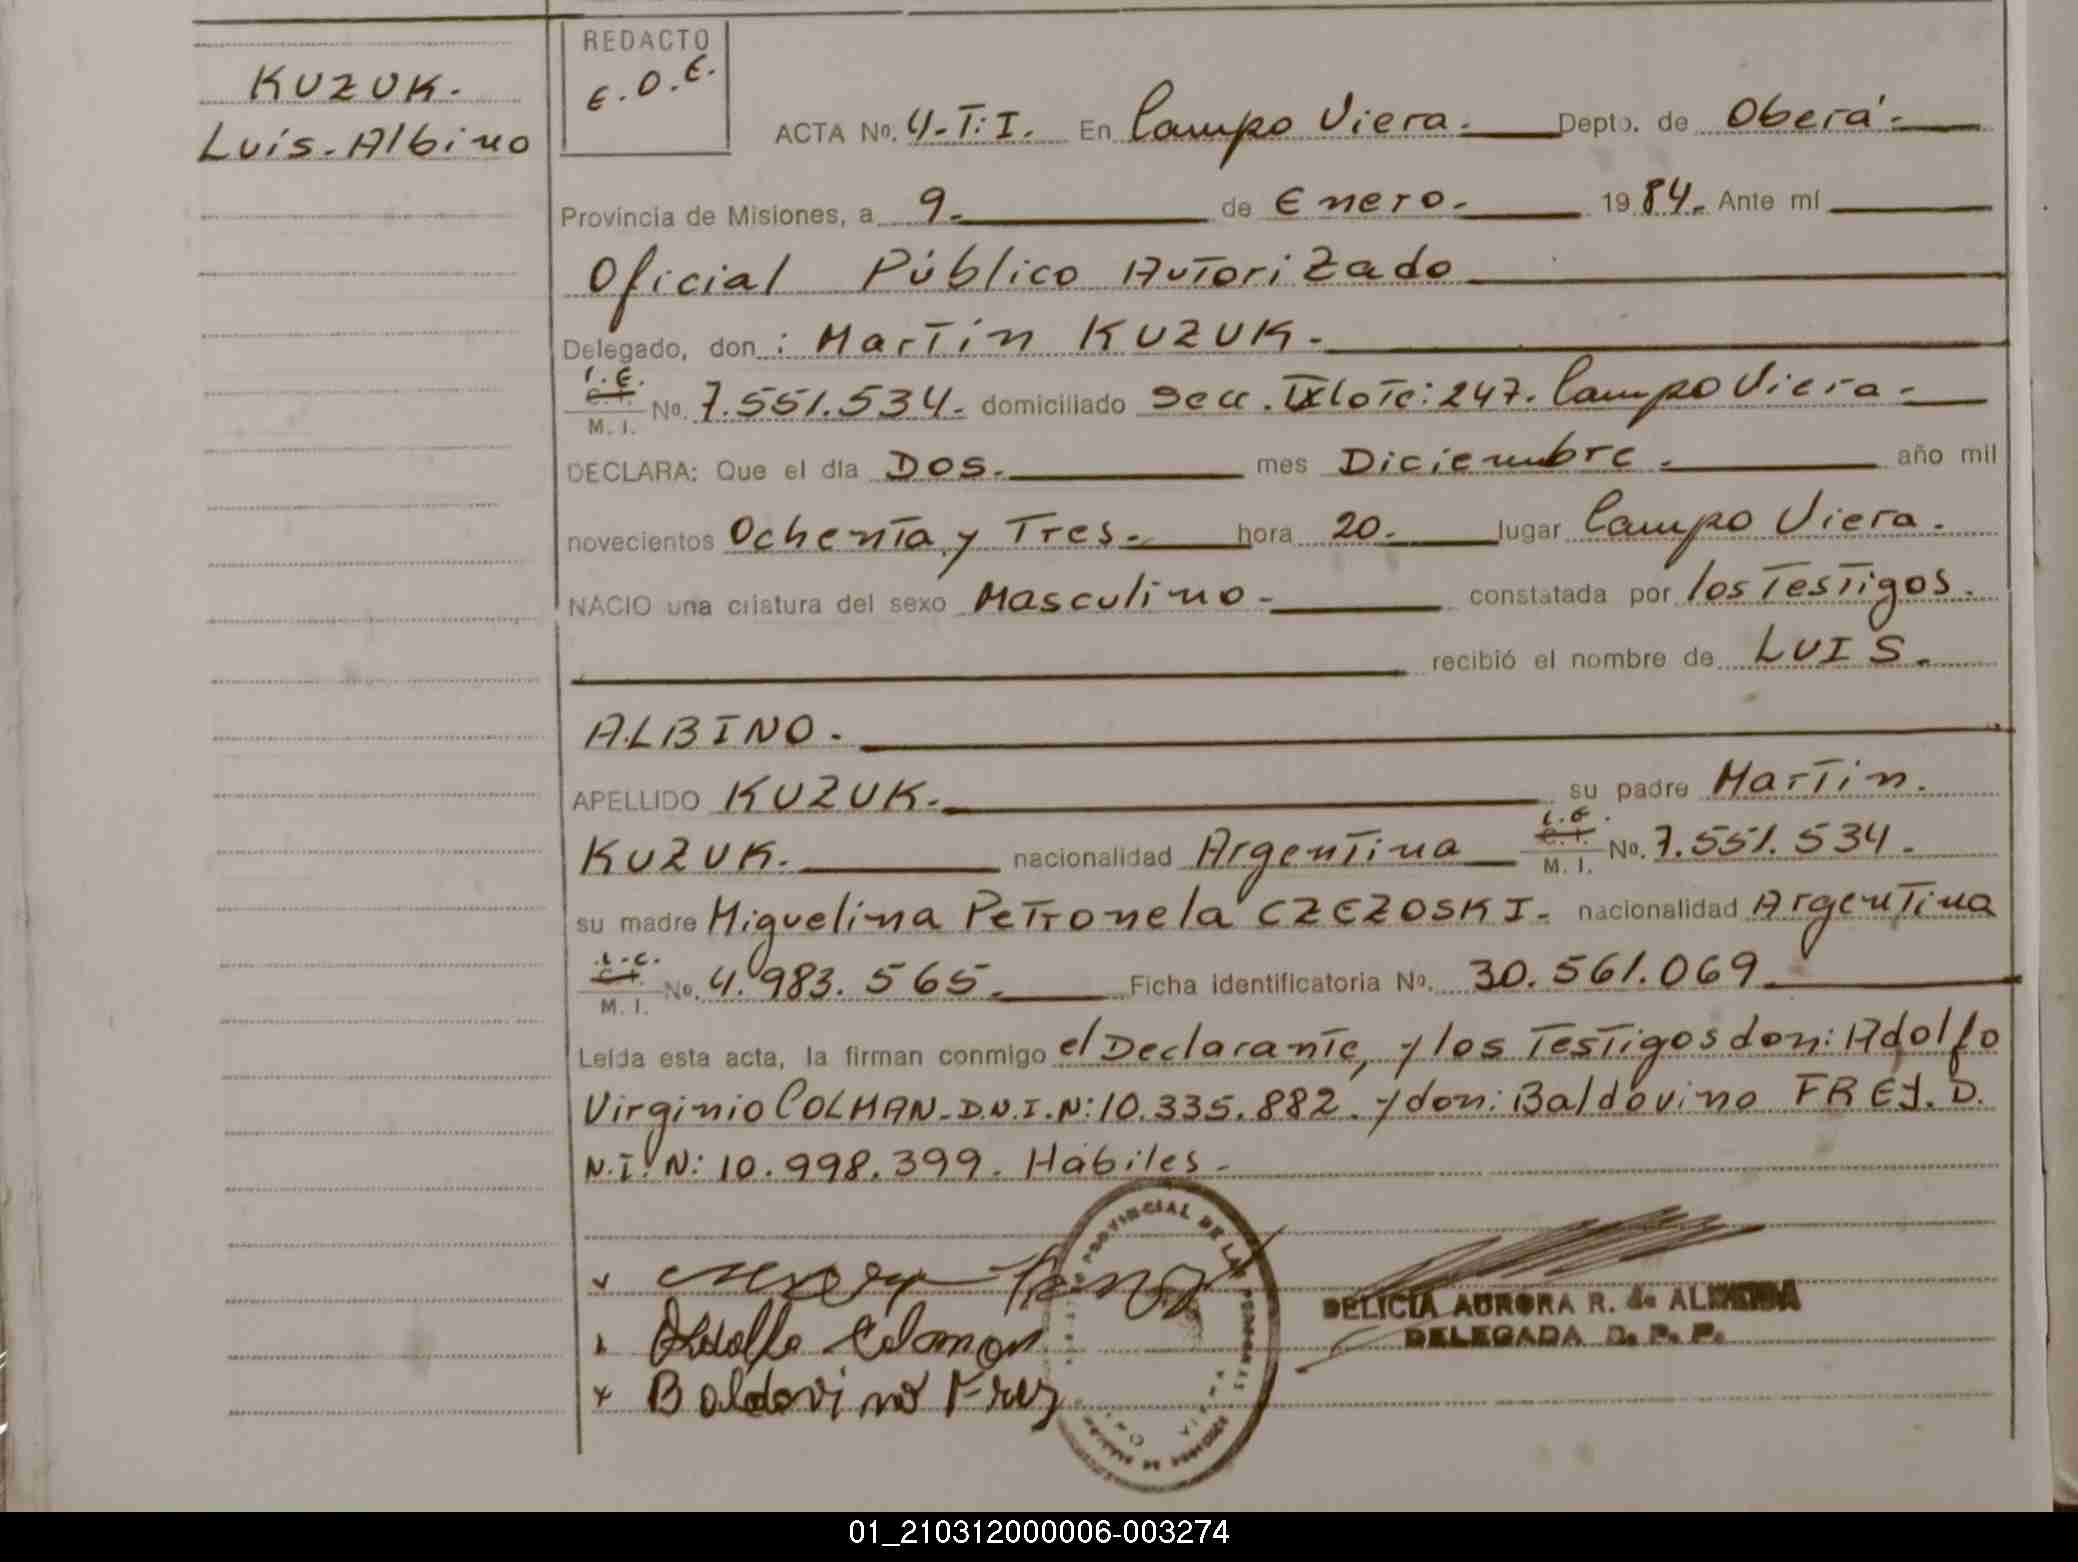 KUZUK.
Luis-Albino
REDACTO
E.O.E.
ACTA No. 4-T:I. En Campo Viera. Depto. de Oberá.
Provincia de Misiones, a 9. de Enero. 1984. Ante mí
Oficial Público Autorizado
Delegado, don: Martín KUZUK.
L.E.
C.I. No. 7.551.534. domiciliado Secc. IX lote: 247. Campo Viera.
M. I.
DECLARA: Que el día Dos. mes Diciembre. año mil
novecientos Ochenta y Tres. hora 20. lugar Campo Viera.
NACIO una criatura del sexo Masculino. constatada por los Testigos.
recibió el nombre de LUIS.
ALBINO.
APELLIDO KUZUK. su padre Martin.
L.E.
KUZUK. nacionalidad Argentina C.I. No. 7.551.534.
M. I.
su madre Miguelina Petronela CZEZOSKI. nacionalidad Argentina
L.C.
C.I. No. 4.983.565. Ficha identificatoria No. 30.561.069
M. I.
Leída esta acta, la firman conmigo el Declarante, y los Testigos don: Adolfo
Virginio COLMAN. D.N.I.N: 10.335.882. y don: Baldovino FREY. D.
N.I. N: 10.998.399. Hábiles.
Adolfo Colman
Baldovino Frey
PROVINCIAL DE LAS PERSONAS
DELICIA AURORA R. de ALMEIDA
DELEGADA R. P. P.
01_210312000006-003274